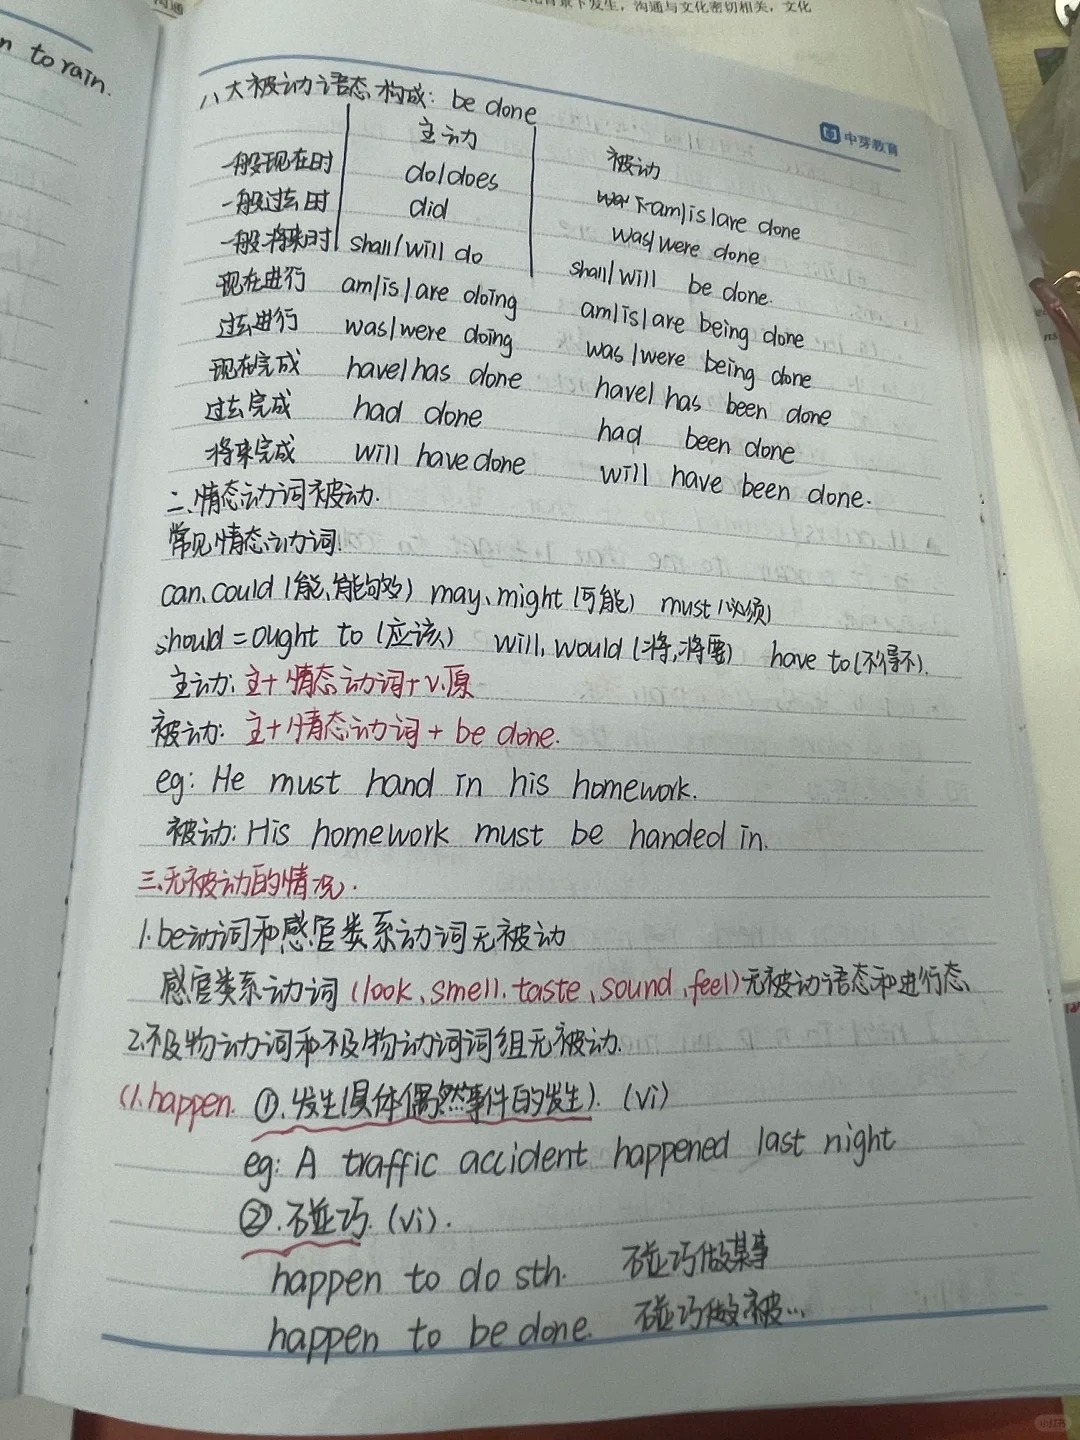 沟通
下发生，沟通与文化密切相关，文化
n to rain.
八大被动语态构成: be done
中芽教育
主动 被动
一般现在时 do/does am/is/are done
一般过去时 did was/were done
一般将来时 shall/will do shall/will be done.
现在进行 am/is/are doing am/is/are being done
过去进行 was/were doing was/were being done
现在完成 have/has done have/has been done
过去完成 had done had been done
将来完成 will have done will have been done.
二、情态动词被动.
常见情态动词.
can、could (能、能够) may、might (可能) must (必须)
should = ought to (应该) will, would (将,将要) have to (不得不).
主动: 主+情态动词+v.原
被动: 主+情态动词 + be done.
eg: He must hand in his homework.
被动: His homework must be handed in.
三、无被动的情况.
1. be动词和感官类系动词无被动
感官类系动词 (look、smell、taste、sound、feel) 无被动语态和进行态、
2.不及物动词和不及物动词词组无被动.
(1. happen. ①. 发生(具体偶然事件的发生). (vi)
eg: A traffic accident happened last night
②. 碰巧. (vi).
happen to do sth. 碰巧做某事
happen to be done. 碰巧做被...
小红书